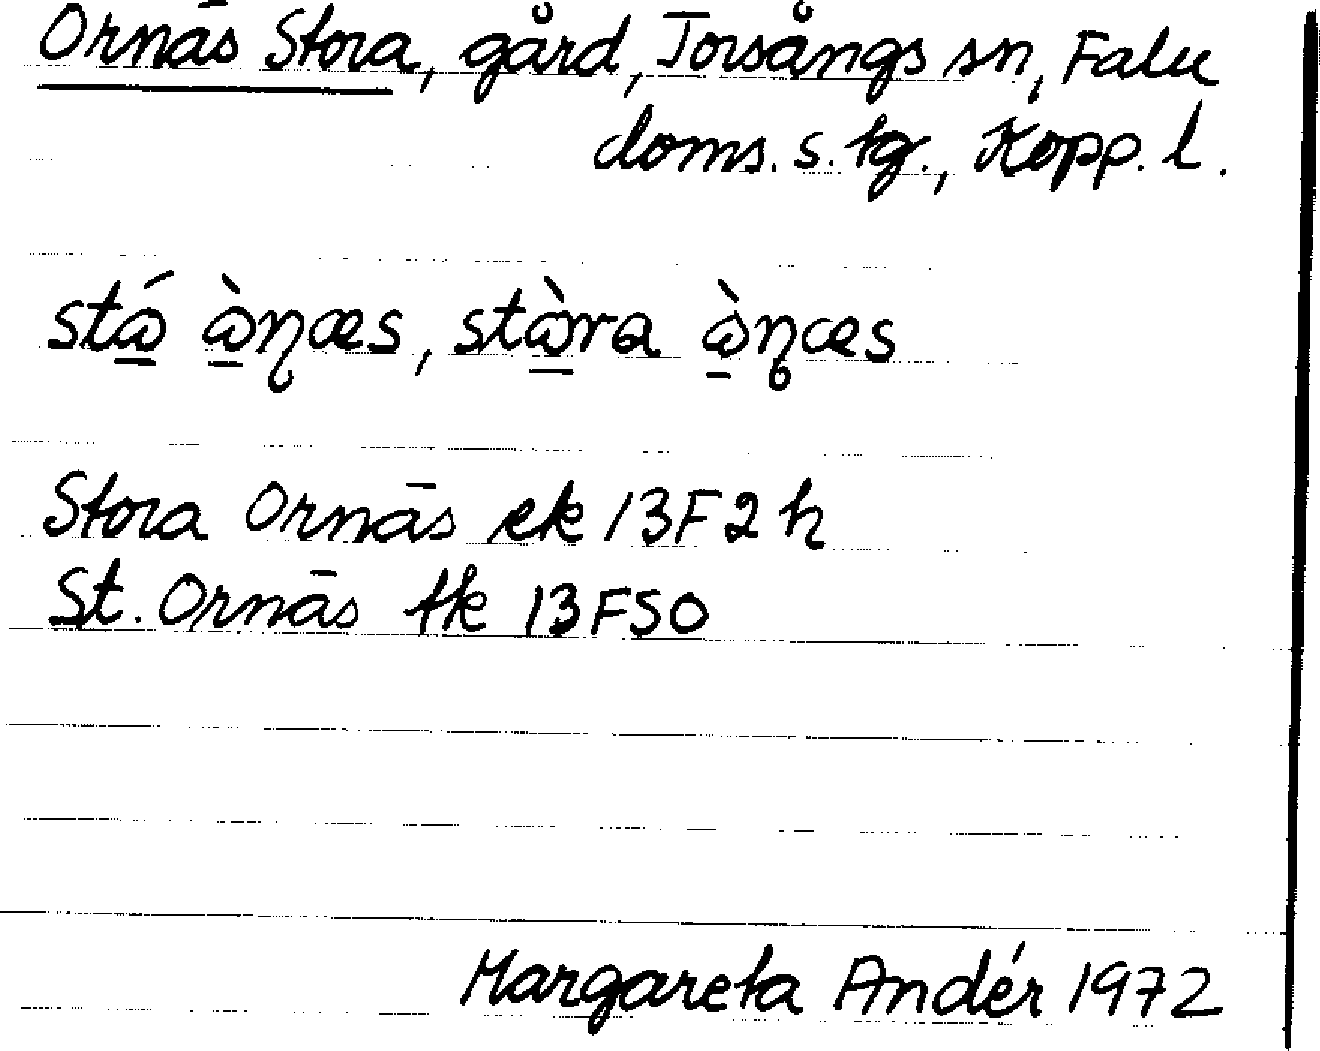 Ornäs Stora, gård, Torsångs sn, Falu
doms. s. tg., Kopp. l.
stꞷ́ ꞷ̀ɳæs, stꞷ̀ra ꞷ̀ɳæs
Stora Ornäs ek 13F2h
St. Ornäs tk 13FSO
Margareta Andér 1972